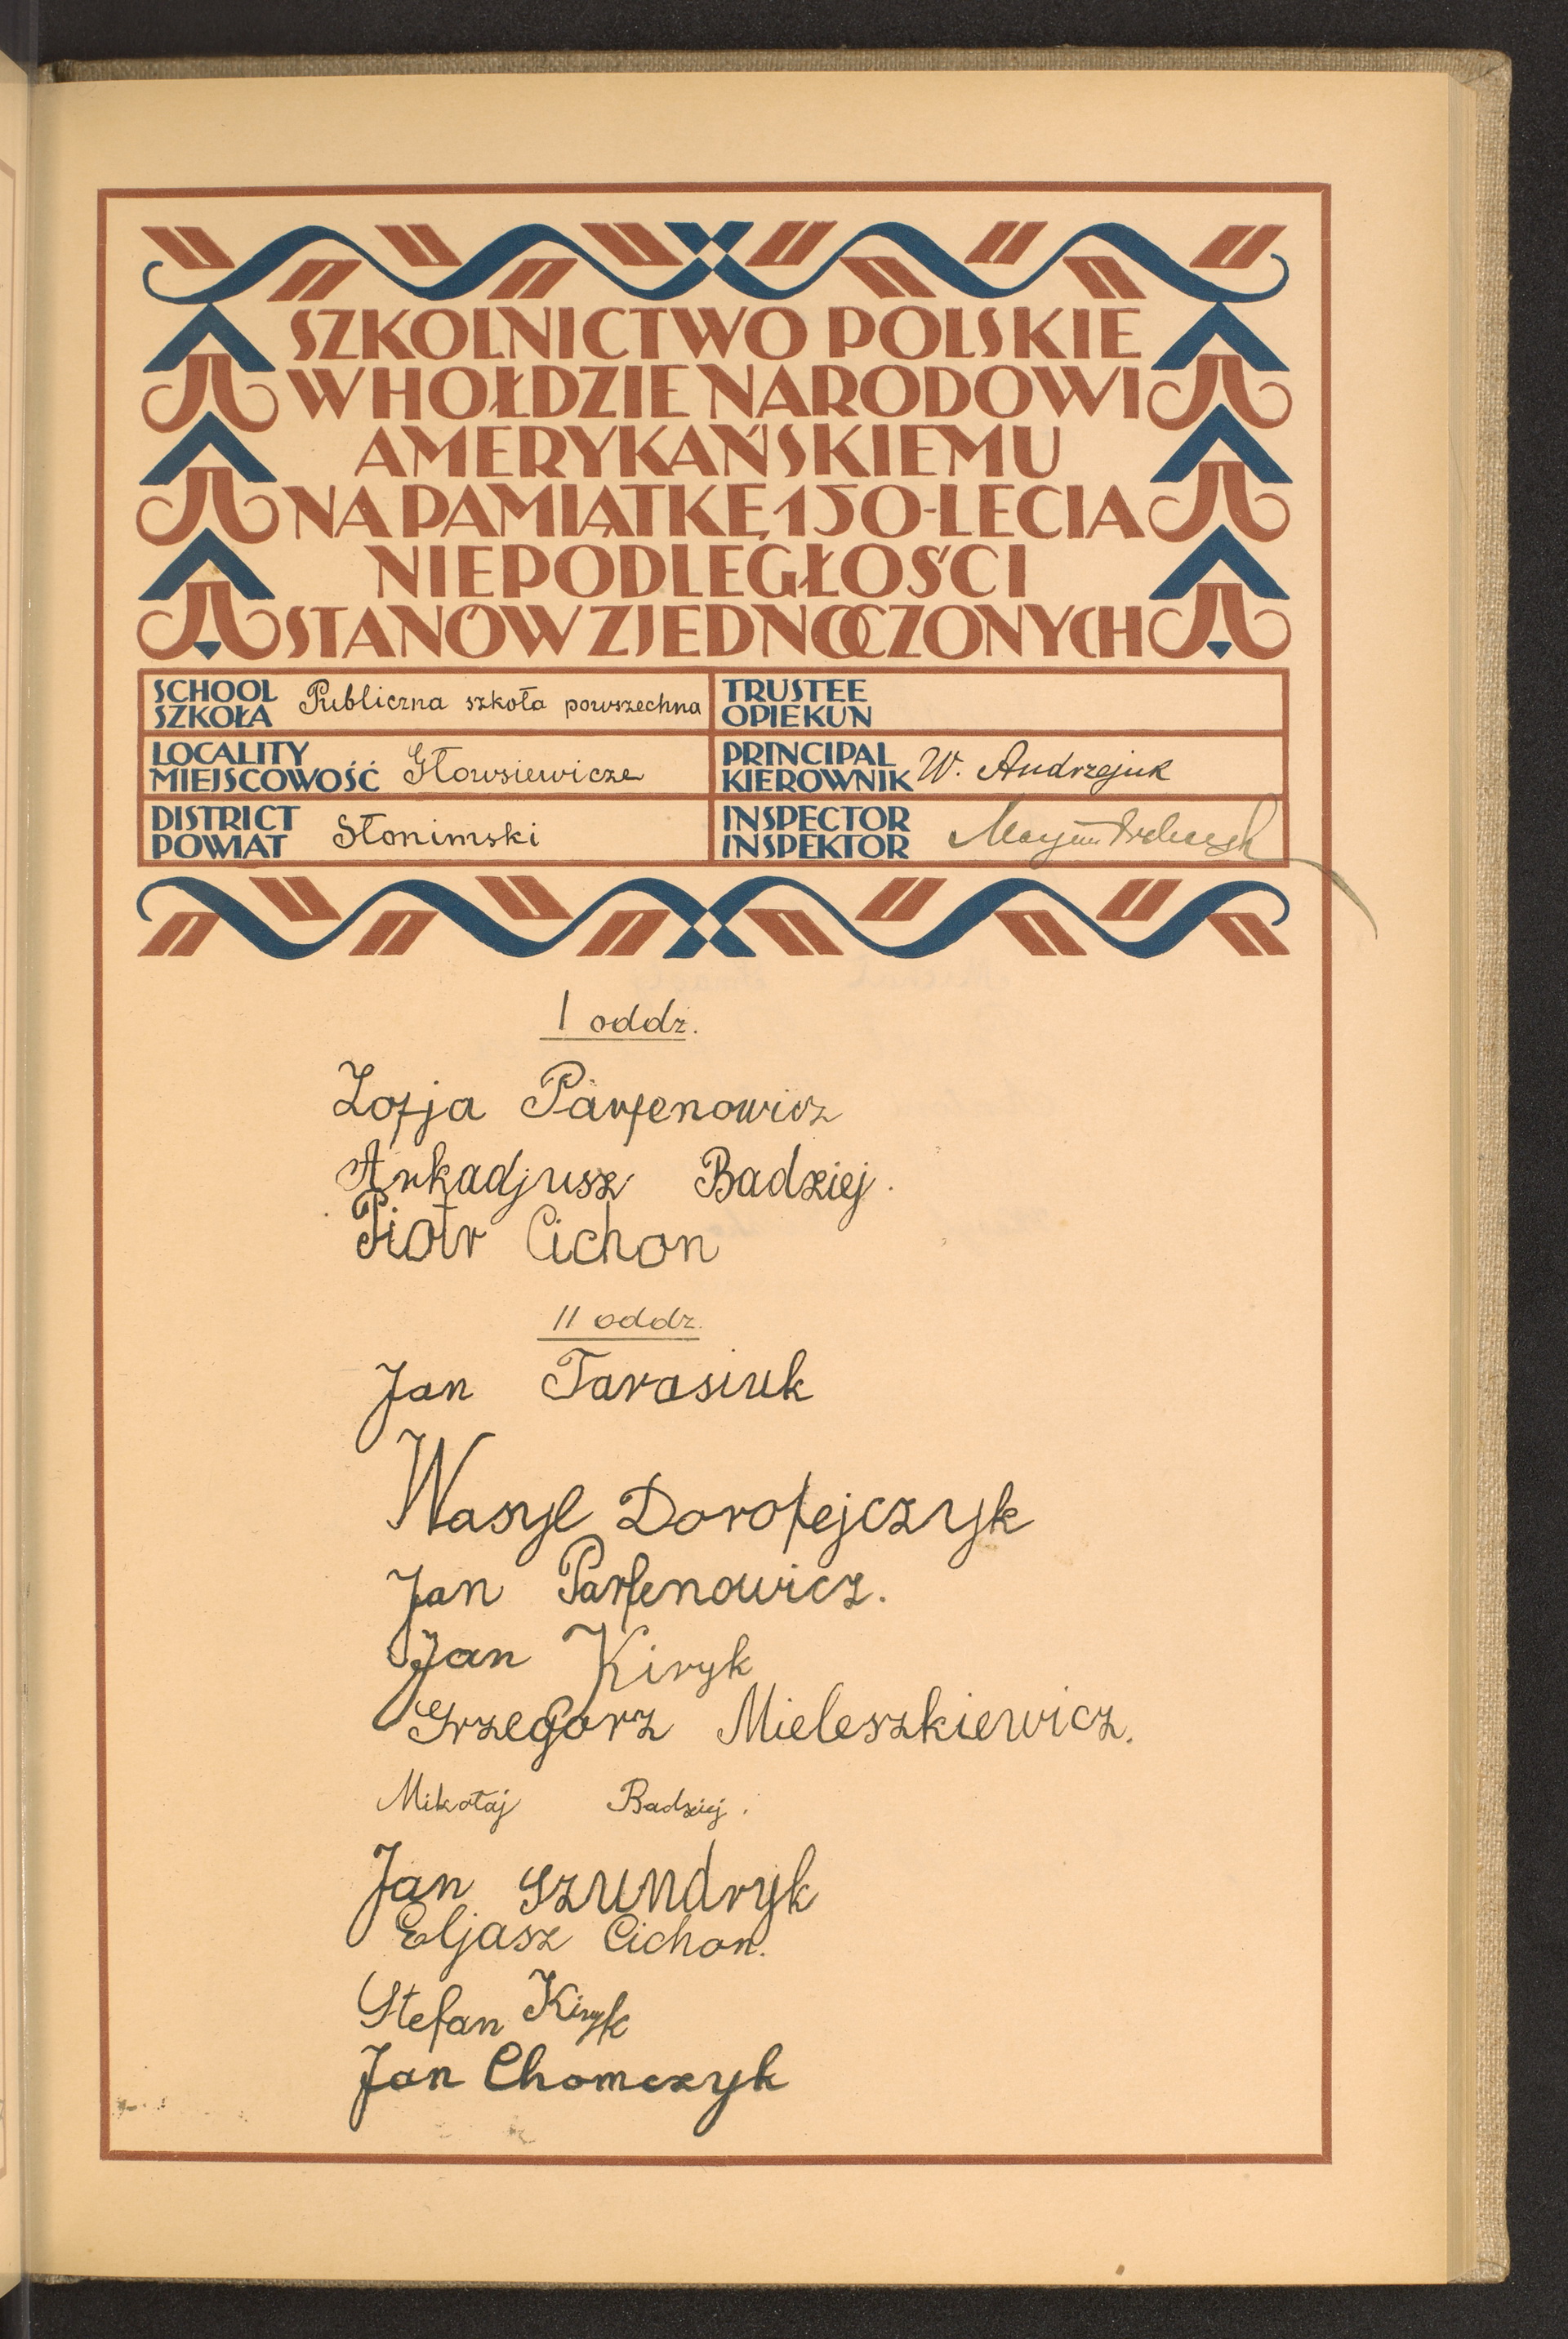 SZKOLNICTWO POLSKIE
W HOŁDZIE NARODOWI
AMERYKAŃSKIEMU
NA PAMIĄTKĘ 150-LECIA
NIEPODLEGŁOŚCI
STANÓW ZJEDNOCZONYCH
SCHOOL
SZKOŁA Publiczna szkoła powszechna
TRUSTEE
OPIEKUN
LOCALITY
MIEJSCOWOŚĆ Głowsiewicze
PRINCIPAL
KIEROWNIK W. Andrzejuk
DISTRICT
POWIAT Słonimski
INSPECTOR
INSPEKTOR
I oddz.
Zofja Parfenowicz
Arkadjusz Badziej.
Piotr Cichon
II oddz.
Jan Tarasiuk
Wasyl Dorofejczyk
Jan Parfenowicz.
Jan Kiryk
Grzegorz Mieleszkiewicz.
Mikołaj Badziej.
Jan Szundryk
Eljasz Cichon.
Stefan Kiryk
Jan Chomczyk